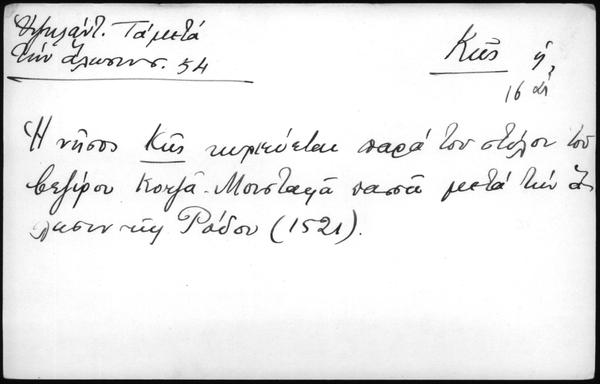 Ὑψηλάντ. Τά μετά
τήν ἅλωσιν σ. 54
Κῶς ἡ
16 αἰ
Ἡ νῆσος Κῶς κυριεύεται παρά τοῦ στόλου τοῦ
βεζίρου Κοτζᾶ-Μουσταφᾶ πασᾶ μετά τήν ἅ-
λωσιν τῆς Ρόδου (1521).